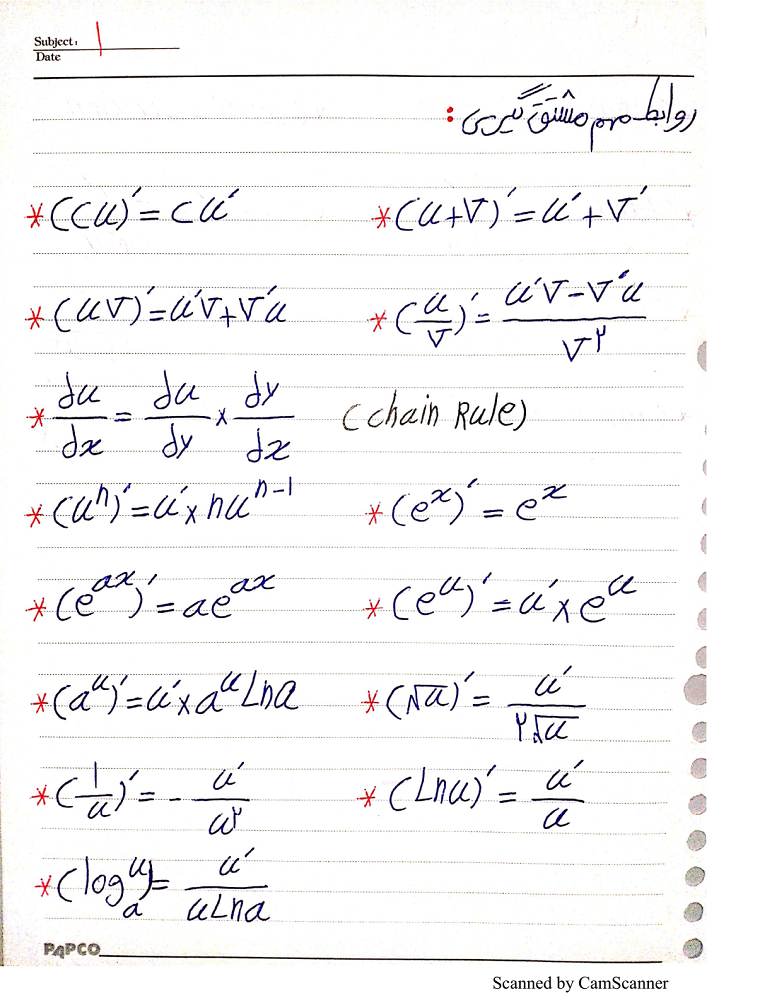 Subject: 1
Date
روابط مهم مشتق گیری:
* (cu)′ = cu′ * (u+v)′ = u′+v′
* (uv)′ = u′v+v′u * (u/v)′ = (u′v−v′u)/v۲
* du/dx = du/dy × dy/dx (chain Rule)
* (uⁿ)′ = u′×nuⁿ⁻¹ * (eˣ)′ = eˣ
* (e^ax)′ = ae^ax * (e^u)′ = u′×e^u
* (a^u)′ = u′×a^u Lna * (√u)′ = u′/(۲√u)
* (1/u)′ = − u′/u۲ * (Lnu)′ = u′/u
* (log_a^u)′ = u′/(uLna)
PAPCO
Scanned by CamScanner